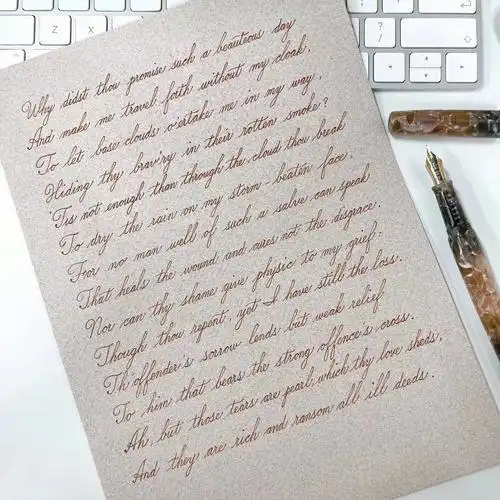 Why didst thou promise such a beauteous day
And make me travel forth without my cloak,
To let base clouds o'ertake me in my way,
Hiding thy brav'ry in their rotten smoke?
'Tis not enough than through the cloud thou break
To dry the rain on my storm-beaten face,
For no man well of such a salve can speak
That heals the wound and cures not the disgrace.
Nor can thy shame give physic to my grief:
Though thou repent, yet I have still the loss.
Th'offender's sorrow lends but weak relief
To him that bears the strong offence's cross.
Ah, but those tears are pearl which thy love sheds,
And they are rich and ransom all ill deeds.
Z
X
?
/